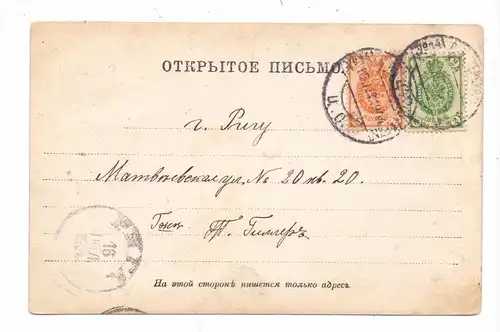 ОТКРЫТОЕ ПИСЬМО.
г. Ригу
Матвѣевская ул. № 20 кв. 20.
Т. Гиллеръ
На этой сторонѣ пишется только адресъ.